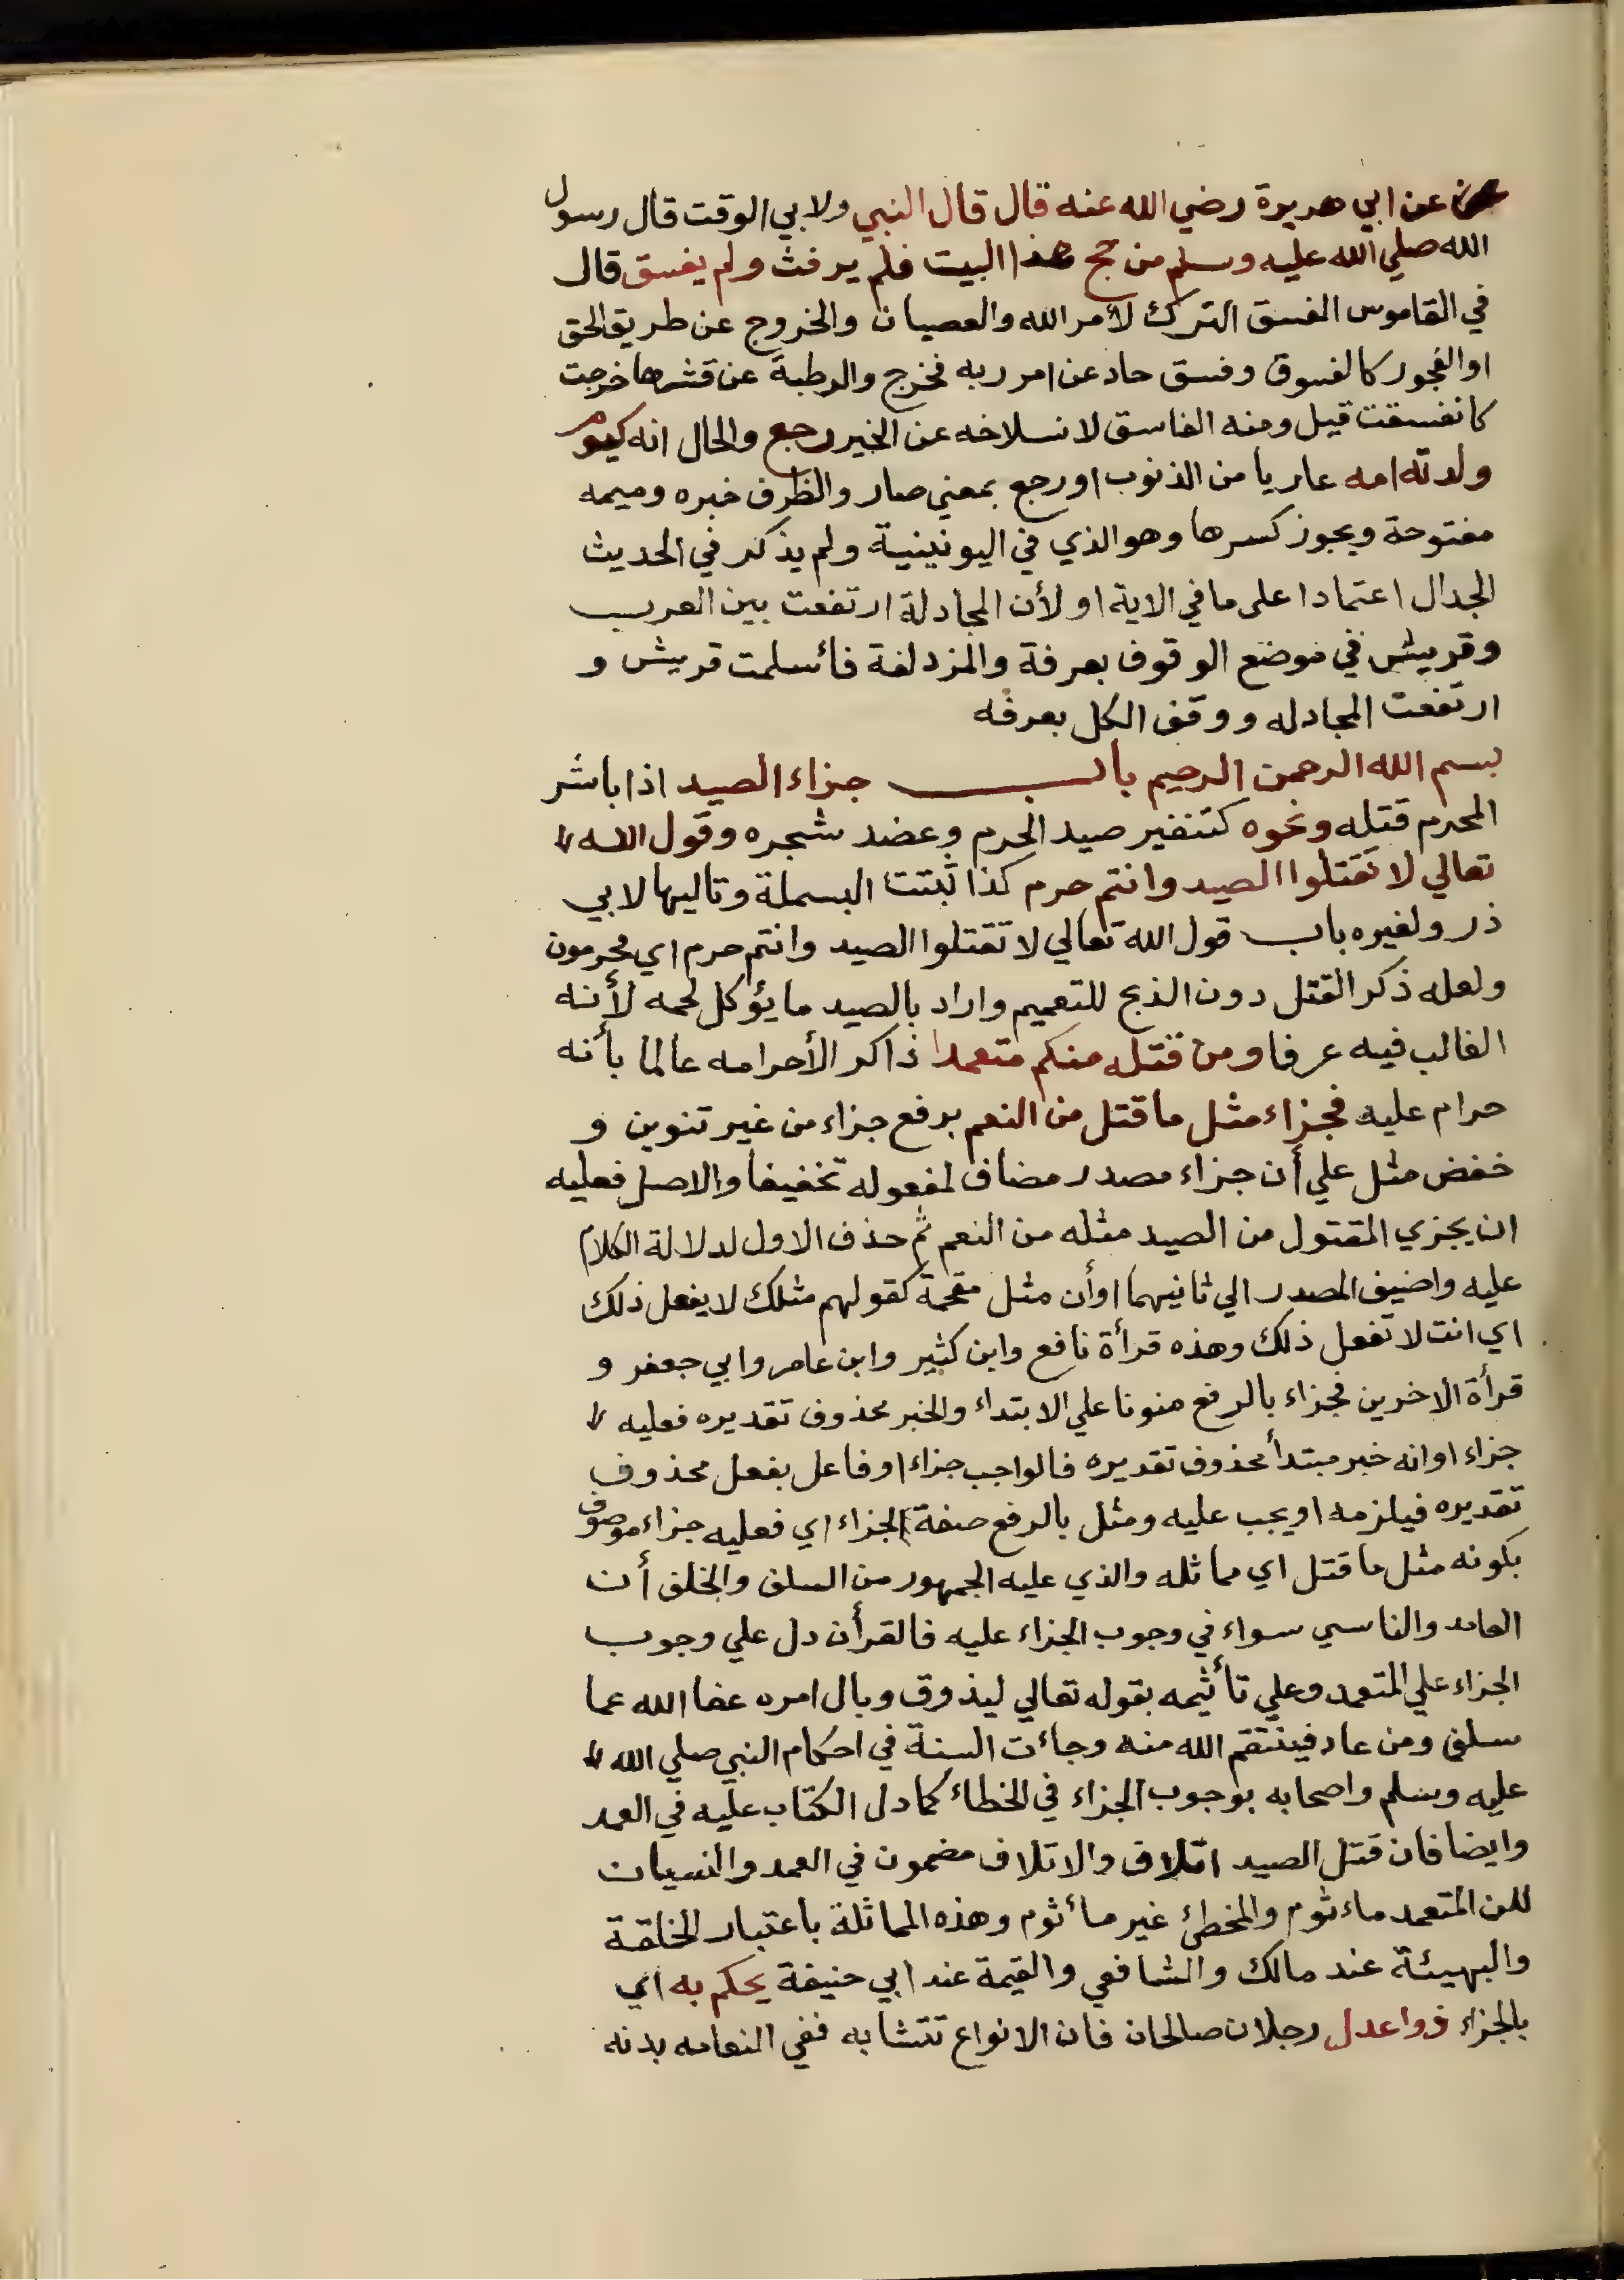 عن ابي هريرة رضي الله عنه قال قال النبي ولابي الوقت قال رسول
الله صلي الله عليه وسلم من حج هذا البيت فلم يرفث ولم يفسق قال
في القاموس الفسق الترك لأمر الله والعصيان والخروج عن طريق الحق
او الفجور كالفسوق وفسق حاد عن امر ربه فخرج والرطبة عن قشرها خرجت
كانفسقت قيل ومنه الفاسق لانسلاخه عن الخير رجع والحال انه كيوم
ولدته امه عاريا من الذنوب او رجع بمعني صار والظرف خبره وميمه
مفتوحة ويجوز كسرها وهو الذي في اليونينية ولم يذكر في الحديث
الجدال اعتمادا على ما في الاية او لأن المجادلة ارتفعت بين العرب
وقريش في موضع الوقوف بعرفة والمزدلفة فأسلمت قريش و
ارتفعت المجادله ووقف الكل بعرفه
بسم الله الرحمن الرحيم باب جزاء الصيد اذا باشر
المحرم قتله ونحوه كتنفير صيد الحرم وعضد شجره وقول الله
تعالي لا تقتلوا الصيد وانتم حرم كذا ثبتت البسملة وتاليها لابي
ذر ولغيره باب قول الله تعالي لا تقتلوا الصيد وانتم حرم اي محرمون
ولعله ذكر القتل دون الذبح للتعميم واراد بالصيد ما يؤكل لحمه لأنه
الغالب فيه عرفا ومن قتله منكم متعمدا ذاكر الأحرامه عالما بأنه
حرام عليه فجزاء مثل ما قتل من النعم برفع جزاء من غير تنوين و
خفض مثل علي أن جزاء مصدر مضاف لمفعوله تخفيفا والاصل فعليه
ان يجزي المقتول من الصيد مثله من النعم ثم حذف الاول لدلالة الكلام
عليه واضيف المصدر الي ثانيهما او أن مثل مقحمة كقولهم مثلك لا يفعل ذلك
اي انت لا تفعل ذلك وهذه قرأة نافع وابن كثير وابن عامر وابي جعفر و
قرأة الاخرين فجزاء بالرفع منونا علي الابتداء والخبر محذوف تقديره فعليه
جزاء او انه خبر مبتدأ محذوف تقديره فالواجب جزاء او فاعل بفعل محذوف
تقديره فيلزمه او يجب عليه ومثل بالرفع صفة لجزاء اي فعليه جزاء موصوف
بكونه مثل ما قتل اي مماثله والذي عليه الجمهور من السلف والخلف أن
العامد والناسي سواء في وجوب الجزاء عليه فالقرأن دل علي وجوب
الجزاء علي المتعمد وعلي تأثيمه بقوله تعالي ليذوق وبال امره عفا الله عما
سلف ومن عاد فينتقم الله منه وجاءت السنة في احكام النبي صلي الله
عليه وسلم واصحابه بوجوب الجزاء في الخطاء كما دل الكتاب عليه في العمد
وايضا فان قتل الصيد اتلاف والاتلاف مضمون في العمد والنسيان
لكن المتعمد مأثوم والمخطئ غير مأثوم وهذه المماثلة باعتبار الخلقة
والهيئة عند مالك والشافعي والقيمة عند ابي حنيفة يحكم به اي
بالجزاء ذوا عدل رجلان صالحان فان الانواع تتشابه ففي النعامه بدنه